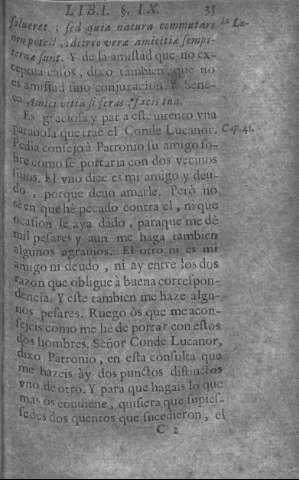 LIB. I. §. IX. 35
solueret; sed quia natura commutari
non potest, idcirco veræ amicitiæ sempi-
ternæ sunt. Y de la amistad que no ex-
ceptuá casos, dixo tambien, que no
es amistad sino conjuracion. Y Sene-
ca Amici vitia si feras, facis tua.
Es graciosa y para est intento vna
parabola que trae el Conde Lucanor. Cap. 41.
Pedia consejo à Patronio su amigo so-
bre como se portaria con dos vecinos
suyos. El vno dice es mi amigo y deu-
do, porque deuo amarle. Pero no
sè en que hè pecado contra el, ni que
ocasion le aya dado, paraque me dè
mil pesares y aun me haga tambien
algunos agrauios. El otro ni es mi
amigo ni deudo, ni ay entre los dos
razon que obligue à buena correspon-
dencia. Y este tambien me haze algu-
nos pesares. Ruego ós que me acon-
sejeis como me hè de portar con estos
dos hombres. Señor Conde Lucanor,
dixo Patronio, en esta consulta que
me hazeis ày dos punctos distinctos
vno de otro. Y para que hagais lo que
mas os conviene, quisiera que supies-
sedes dos quentos que sucedieron, el
C 2